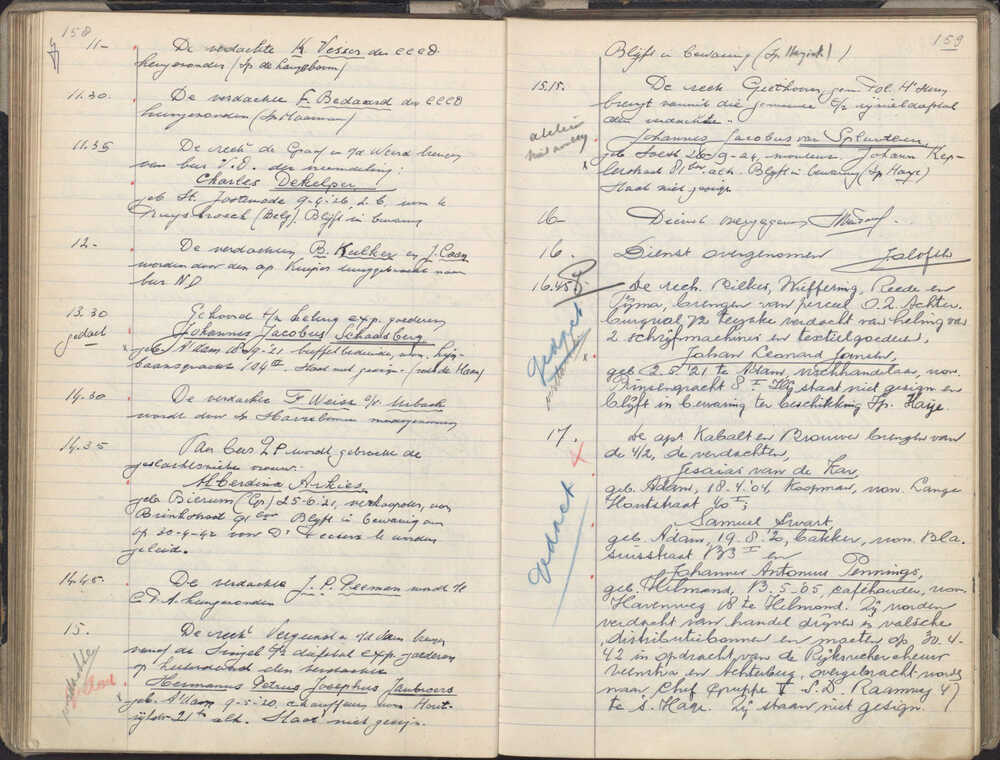 158
11-
De verdachte K Visser der CCCD
heengezonden (Ip de Langeboom)
11.30.
De verdachte F. Bedaard der CCCD
heengezonden (Ip Maarman)
11.35
De rech^t de Graaf en v/d Weerd brengen
van bur V.D. der vreemdeling:
Charles Dekelper,
geb St. Joostenode 9-4-26, z.b. won te
Ruysbrosch (Belg) Blijft in bewaring
12.-
De verdachten B. Kulker en J. Caen
worden door den ap. Kuiper teruggebracht naar
bur N.P
13.30
gedact
Gehoord t/z heling exp. goederen
Johannes Jacobus Schaasberg
x geb. A'dam 18-4-21 buffetbediende, won. Lijn-
baansgracht 194 III. Staat niet gesign.
14.30
De verdachte F Weiss
wordt door Ip Harrebomee
14.35
Van bur Z.P. wordt gebracht de
geslachtszieke vrouw:
Alberdina Arkies,
geb Bierum (Gr) 25-6-21, verkoopster, won
Brinkstraat 91 hs Blijft in bewaring om
op 30-4-42 voor Dr te worden
geleid.
14.45
De verdachte J.P. Peeman wordt te
C.I.A. heengezonden
15.
De rech^t Vergeund en v/d Veen brengen
vanaf de Singel t/z diefstal exp. goederen
op heeterdaad den verdachte
Hermanus Petrus Josephus Jaubroers
x geb. A'dam 9-5-20, chauffeur, won Hout-
rijkstr 21 hs alh. Staat niet gesign.
159
Blijft in bewaring (Ip Haye)
15.15.
De rech Giethoorn, gem. Pol. 4e
brengt vanuit die gemeente t/z rijwieldiefstal
den verdachte:
Johannes Jacobus van Splunteren,
x geb Soest 26-9-24, monteur, Johann Kep-
lerstraat 81 hs alh. Blijft in bewaring (Ip Haye)
Staat niet gesign
16-
Dienst overgegeven
16.
Dienst overgenomen
16.45
gedact
De rech. Rilker, Wiffering, Reede en
Sijzma, brengen van perceel O.Z. Achter-
burgwal 72 terzake verdacht van heling van
2 schrijfmachines en textielgoederen,
Johan Leonard Jansen,
geb 2.5.'21 te A'dam, vischhandelaar, won.
Prinsengracht 8 I Hij staat niet gesign en
blijft in bewaring ter beschikking Ip. Haye.
17.
gedact
De agt Kabalt en Brouwer brengen van
de 4/2, de verdachten,
Jesaias van de Kar,
geb. Adam, 18.4.'04, koopman, won. Lange
Houtstraat 40 I;
Samuel Swart,
geb. Adam, 19.8.'20, bakker, won. Bla-
siusstraat 123 I en
Johannes Antonius Pennings,
geb. Helmond, 13.5-'05, caféhouder, won.
Havenweg 18 te Helmond. Zij worden
verdacht van handel drijven in valsche
distributiebonnen en moeten op 30.4.
42 in opdracht van de Rijksrechercheur
Veenstra en Achterberg, overgebracht worden
naar Chef Gruppe V S.D. Raamweg 47
te s. Hage. Zij staan niet gesign.